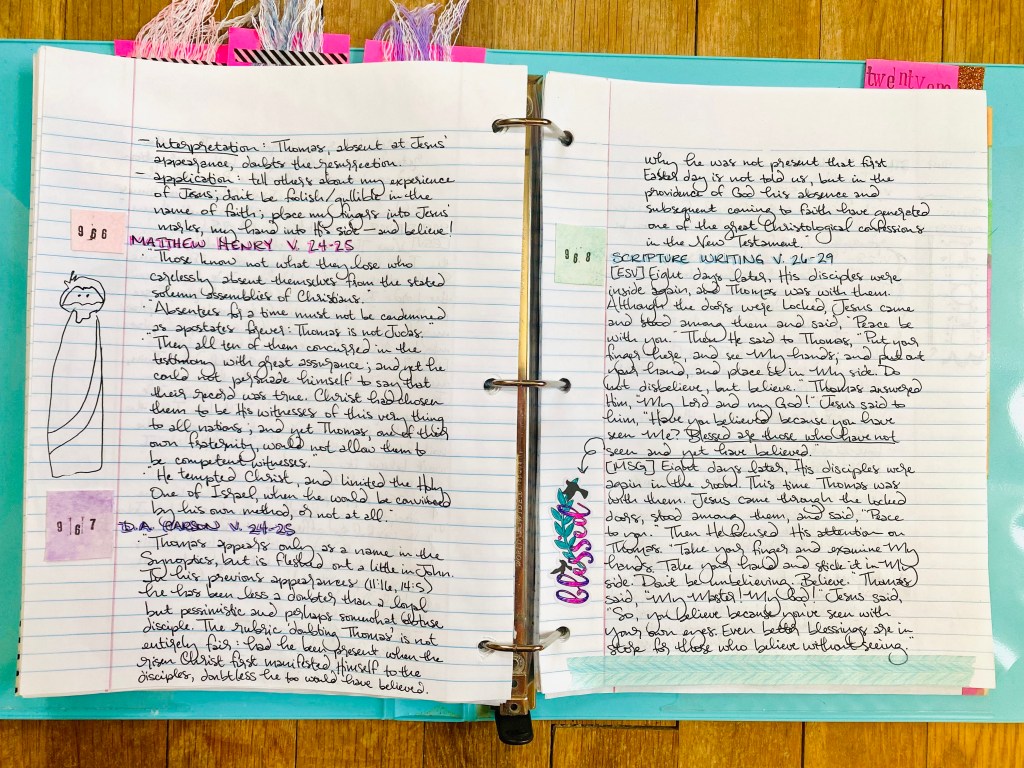 - interpretation: Thomas, absent at Jesus'
appearance, doubts the resurrection.
- application: tell others about my experience
of Jesus; don't be folish/gullible in the
name of faith; place my fingers into Jesus'
marks, my hand into His side — and believe!
966
MATTHEW HENRY V. 24-25
"Those know not what they lose who
carelessly absent themselves from the stated
solemn assemblies of Christians."
"Absentees for a time must not be condemned
as apostates forever: Thomas is not Judas."
"They all ten of them concurred in the
testimony with great assurance; and yet he
could not persuade himself to say that
their record was true. Christ had chosen
them to be His witnesses of this very thing
to all nations; and yet Thomas, one of their
own fraternity, would not allow them to
be competent witnesses."
"He tempted Christ, and limited the Holy
One of Israel, when he would be convinced
by his own method, or not at all."
967
D.A. CARSON V. 24-25
"Thomas appears only as a name in the
Synoptics, but is fleshed out a little in John.
In his previous appearances (11:16, 14:5)
he has been less a doubter than a loyal
but pessimistic and perhaps somewhat obtuse
disciple. The rubric 'doubting Thomas' is not
entirely fair: had he been present when the
risen Christ first manifested Himself to the
disciples, doubtless he too would have believed.
twenty one
Why he was not present that first
Easter day is not told us, but in the
providence of God his absence and
subsequent coming to faith have generated
one of the great Christological confessions
in the New Testament."
968
SCRIPTURE WRITING V. 26-29
[ESV] Eight days later, His disciples were
inside again, and Thomas was with them.
Although the doors were locked, Jesus came
and stood among them and said, "Peace be
with you." Then He said to Thomas, "Put your
finger here, and see My hands; and put out
your hand, and place it in My side. Do
not disbelieve, but believe." Thomas answered
Him, "My Lord and my God!" Jesus said to
him, "Have you believed because you have
seen Me? Blessed are those who have not
seen and yet have believed."
[MSG] Eight days later, His disciples were
again in the room. This time Thomas was
with them. Jesus came through the locked
doors, stood among them, and said, "Peace
to you." Then He focused His attention on
Thomas. "Take your finger and examine My
hands. Take your hand and stick it in My
side. Don't be unbelieving. Believe." Thomas
said, "My Master! My God!" Jesus said,
"So, you believe because you've seen with
your own eyes. Even better blessings are in
store for those who believe without seeing."
blessed